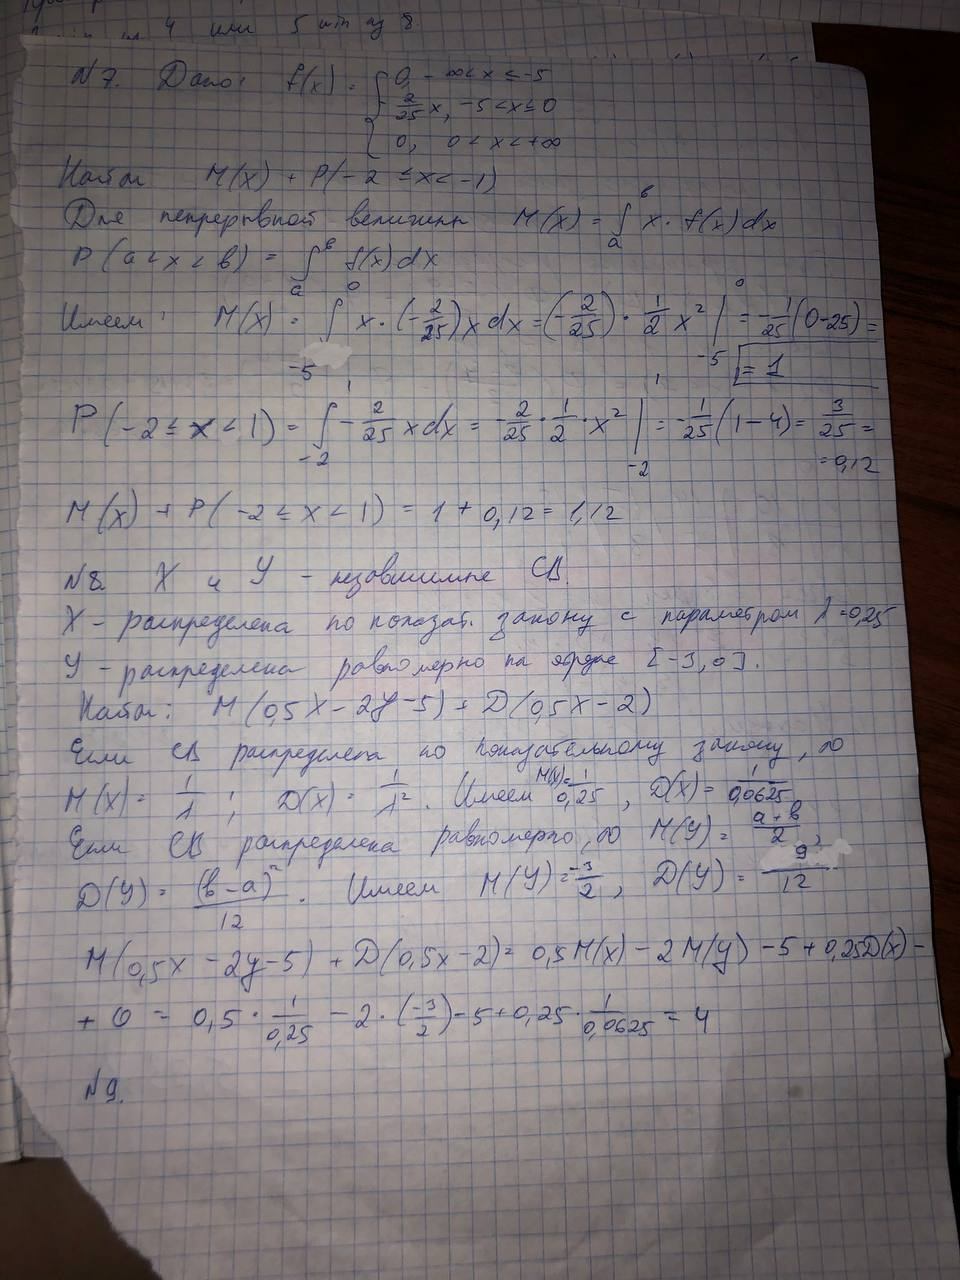 4 или 5 шт из 8.
N7. Дано: f(x) = { 0, -∞<x≤-5
-2/25 x, -5<x≤0
0, 0<x<+∞
Найти M(X) + P(-2 ≤x<-1)
Для непрерывной величины M(X) = ∫ₐᵇ x · f(x)dx
P(a<x<b) = ∫ₐᵇ f(x)dx
Имеем: M(X) = ∫₋₅⁰ x·(-2/25)x dx = (-2/25) · 1/2 x² |₋₅⁰ = -1/25(0-25) =
= 1
P(-2≤x<1) = ∫₋₂¹ -2/25 x dx = -2/25 · 1/2 · x² |₋₂¹ = -1/25(1-4) = 3/25 =
=0,12
M(X) + P(-2≤x<1) = 1 + 0,12 = 1,12
N8. X и Y – независимые СВ.
X – распределена по показат. закону с параметром λ=0,25
Y – распределена равномерно на отрезке [-3,0].
Найти: M(0,5X-2Y-5) + D(0,5X-2)
Если СВ распределена по показательному закону, то
M(X) = 1/λ ; D(X) = 1/λ². Имеем M(X)= 1/0,25, D(X) = 1/0,0625
Если СВ распределена равномерно, то M(Y) = a+b/2,
D(Y) = (b-a)²/12. Имеем M(Y) = -3/2, D(Y) = 9/12
M(0,5x-2y-5) + D(0,5x-2) = 0,5M(x) - 2M(y) - 5 + 0,25D(x) -
+ 0 = 0,5 · 1/0,25 - 2·(-3/2) - 5 + 0,25 · 1/0,0625 = 4
N9.